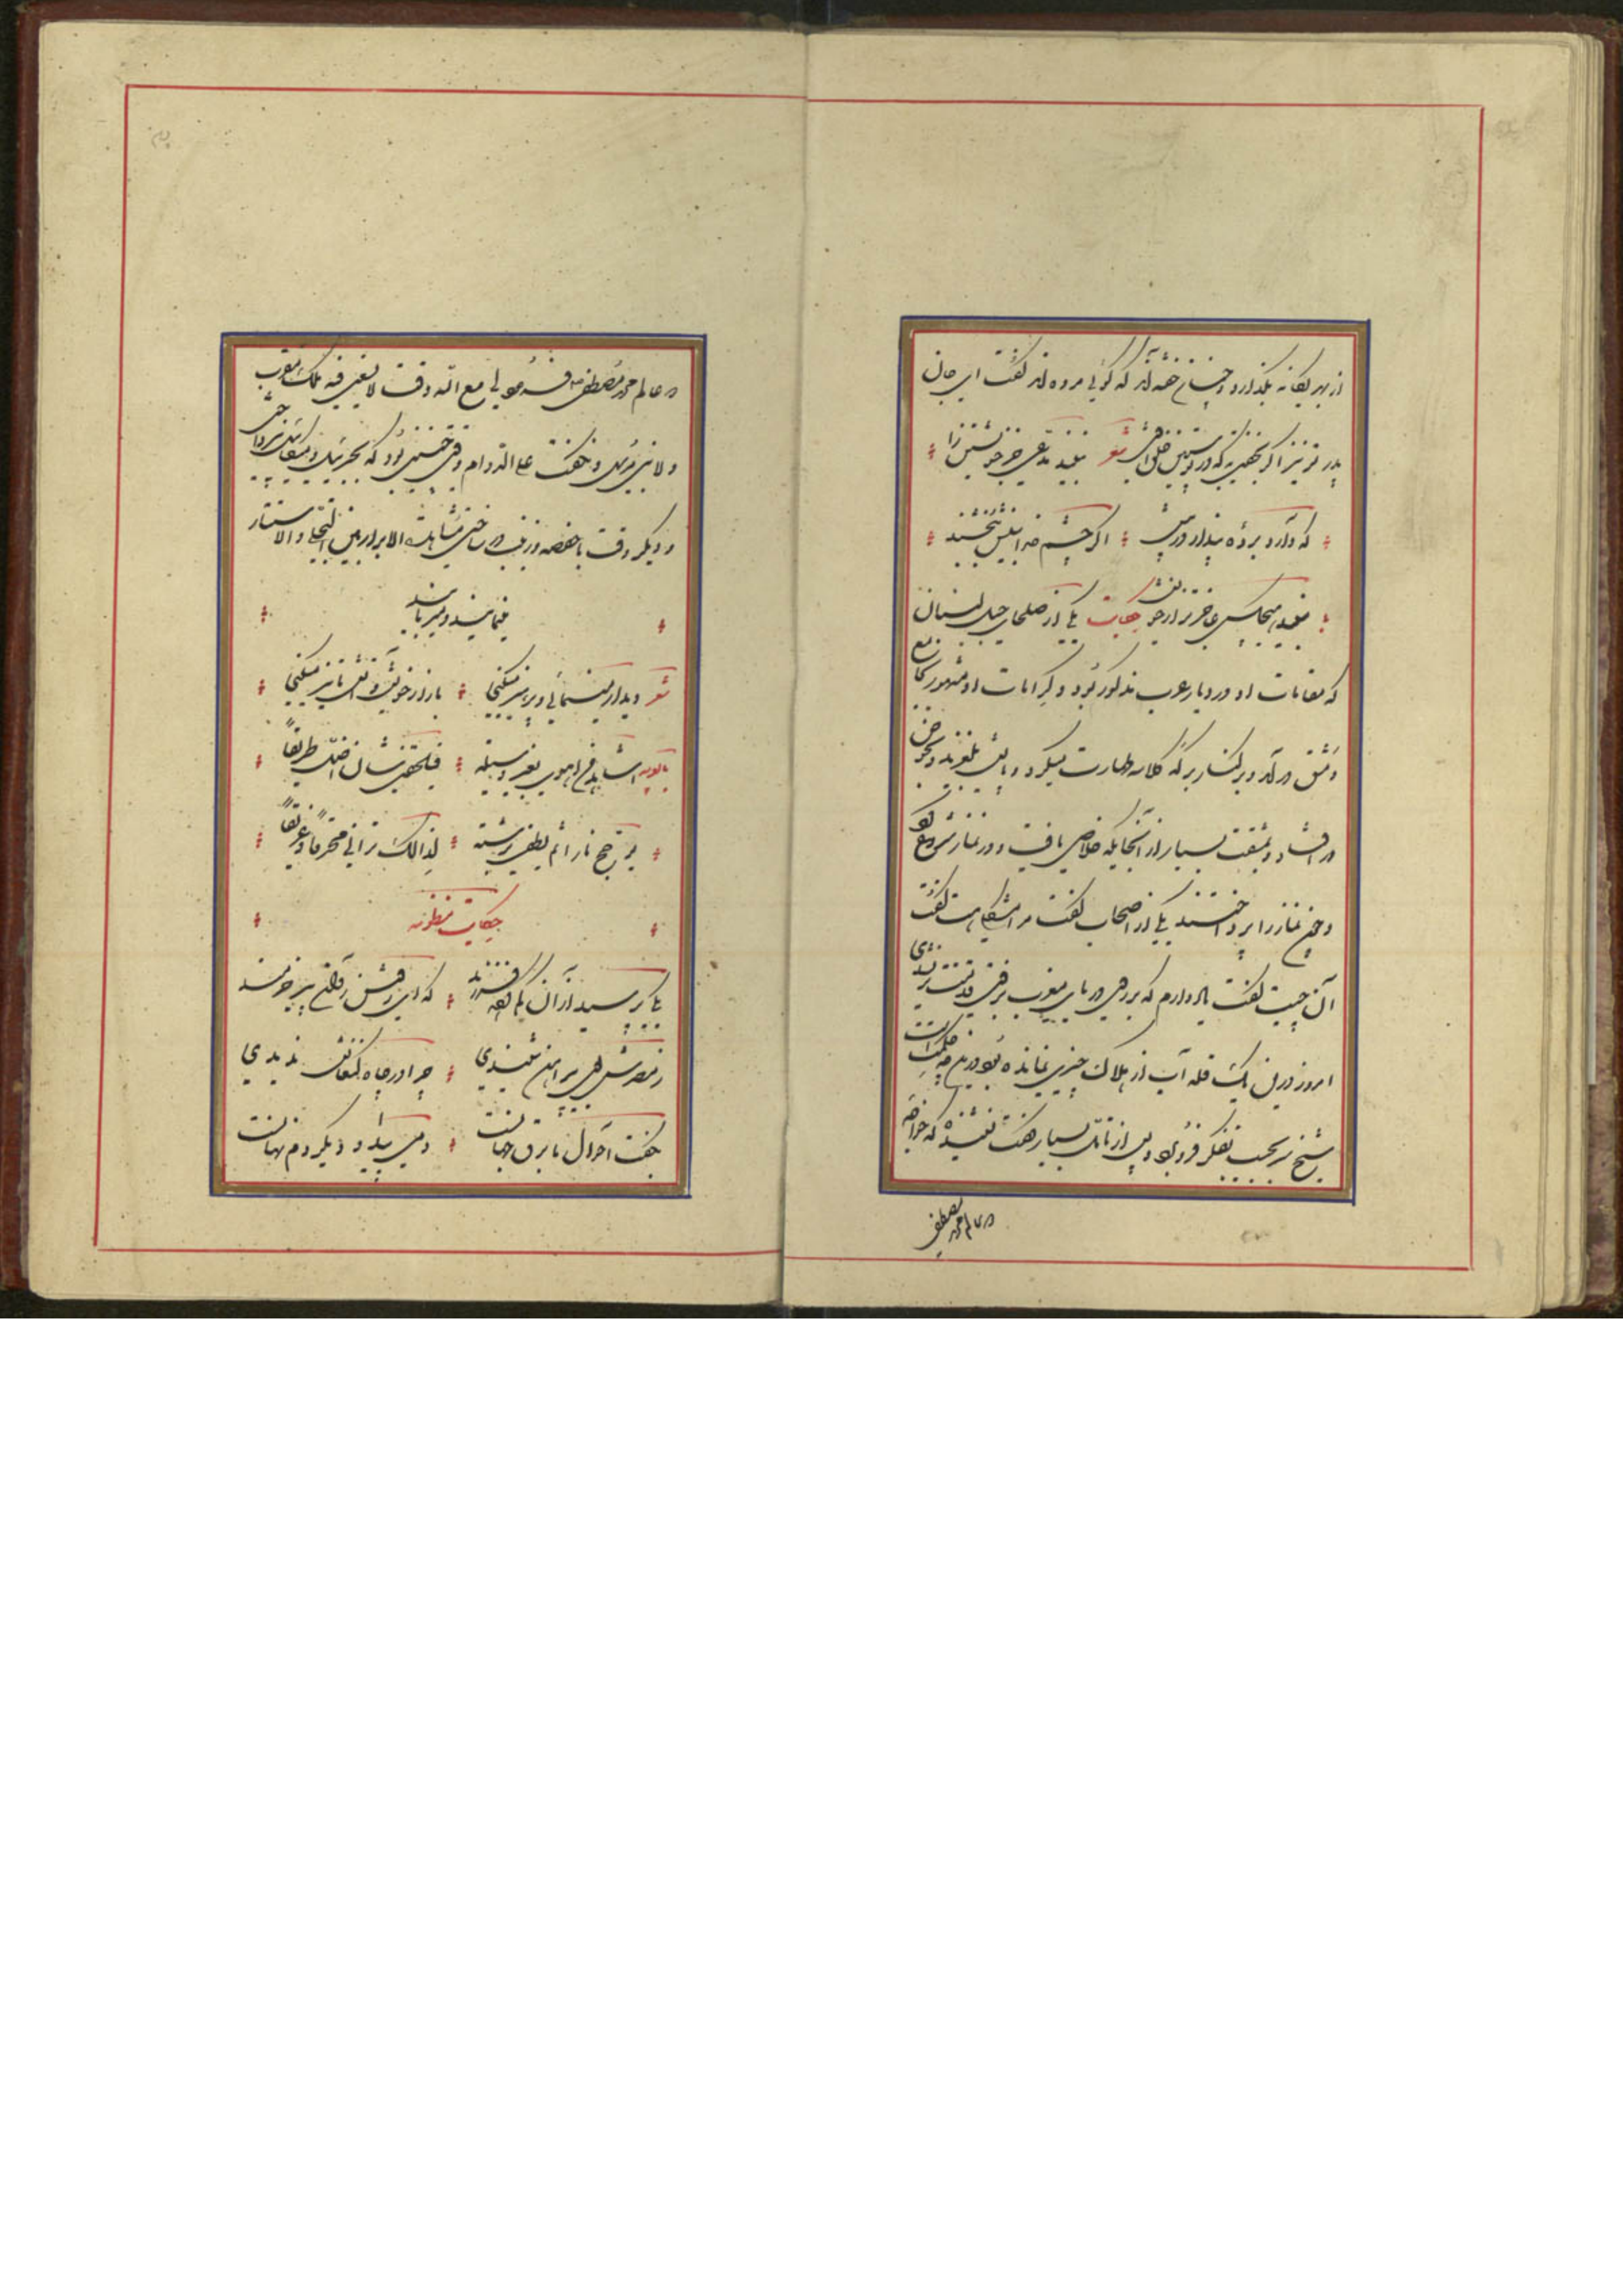 از بهر یگانه بگذارد و چنان خفته‌اند که گوئی مرده‌اند گفت ای جان
پدر تو نیز اگر بخفتی به که در پوستین خلق افتی شعر نبیند مدعی جز خویشتن را
که دارد پرده پندار در پیش اگر چشم خدا بینش ببخشند
نبیند هیچکس عاجزتر از خویش حکایت یکی از صلحای جبل لبنان
که مقامات او در دیار عرب مذکور بود و کرامات او مشهور بجامع
دمشق در آمد و بر کنار برکه کلاسه طهارت میکرد پایش بلغزید و بحوض
در افتاد و بمشقت بسیار از آنجایگه خلاصی یافت و در نماز شروع کرد
و چون نماز را بپرداختند یکی از اصحاب گفت مرا مشکلی هست گفت
آن چیست گفت یاد دارم که بر روی دریای مغرب برفتی و قدمت تر نشدی
امروز درین یک قله آب از هلاک چیزی نمانده بود درین چه حکمت است
شیخ سر بجیب تفکر فرو برد و پس از تامل بسیار گفت نشنیده که خواجه
عالم محمد مصطفی
در عالم محمد مصطفی ص فرمود لی مع الله وقت لا یسعنی فیه ملک مقرب
و لا نبی مرسل و نگفت علی الدوام وقتی چنین بود که بجبرئیل و میکائیل نپرداختی
و دیگر وقت با حفصه و زینب در ساختی مشاهدة الابرار بین التجلی و الاستتار
مینمایند و میربایند
شعر دیدار مینمائی و پرهیز میکنی بازار خویش و آتش ما تیز میکنی
اشاهد من اهوی بغیر وسیلة فیلحقنی شان اضل طریقا
یؤجج نارا ثم یطفی برشة لذالک ترانی محرقا و غریقا
حکایت منظومه
یکی پرسید از آن گم کرده فرزند که ای روشن روان پیر خردمند
ز مصرش بوی پیراهن شنیدی چرا در چاه کنعانش ندیدی
بگفت احوال ما برق جهانست دمی پیدا و دیگر دم نهانست